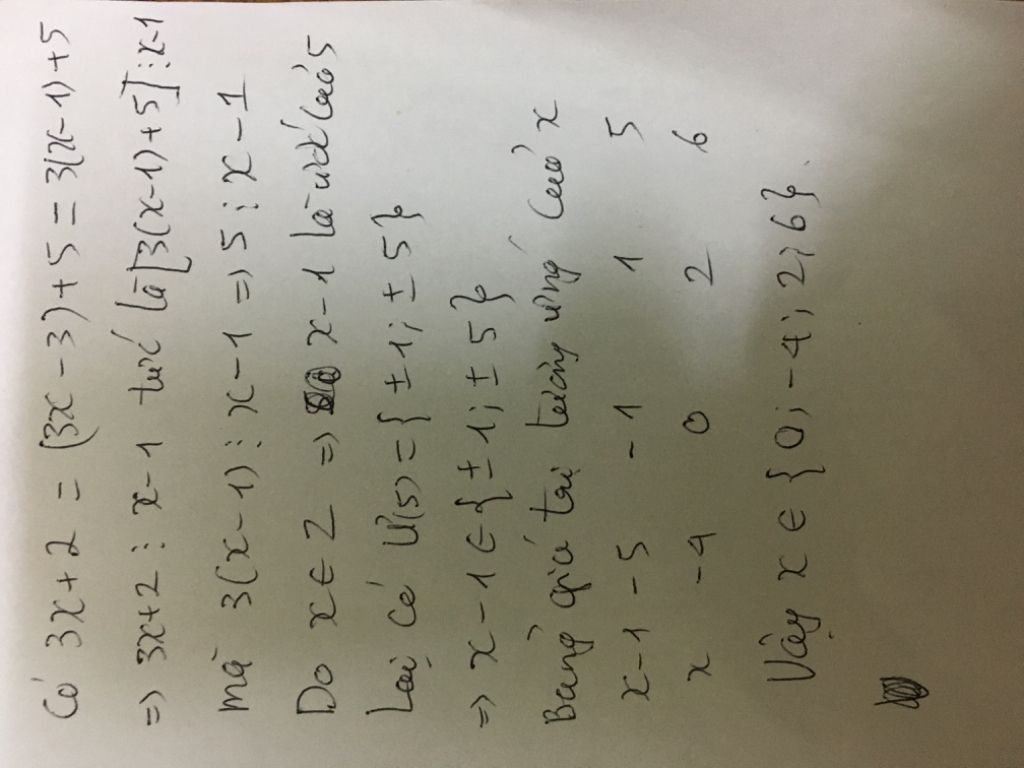 Có 3x + 2 = (3x - 3) + 5 = 3(x - 1) + 5
=> 3x+2 ⋮ x - 1 tức là [3(x-1)+5] ⋮ x-1
mà 3(x-1) ⋮ x-1 => 5 ⋮ x - 1
Do x ∈ Z => x-1 là ước của 5
Lại có Ư(5) = {±1; ±5}
=> x - 1 ∈ {±1; ±5}
Bảng giá trị tương ứng của x
x-1 -5 -1 1 5
x -4 0 2 6
Vậy x ∈ {0; -4; 2; 6}.